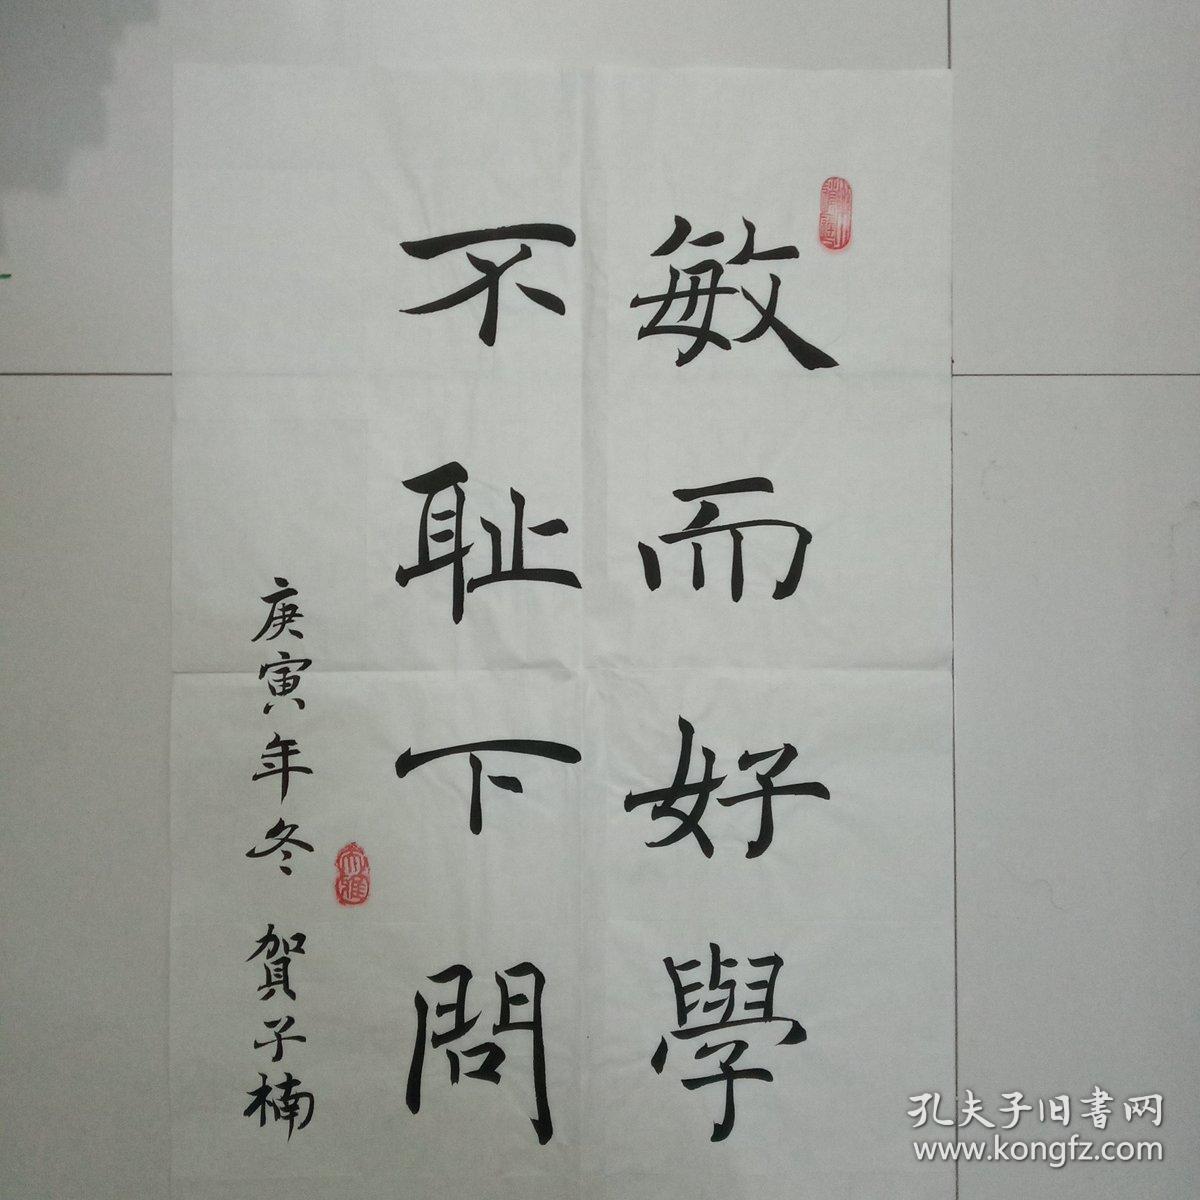 敏而好學
不耻下問
庚寅年冬 賀子楠
孔夫子旧書网
www.kongfz.com